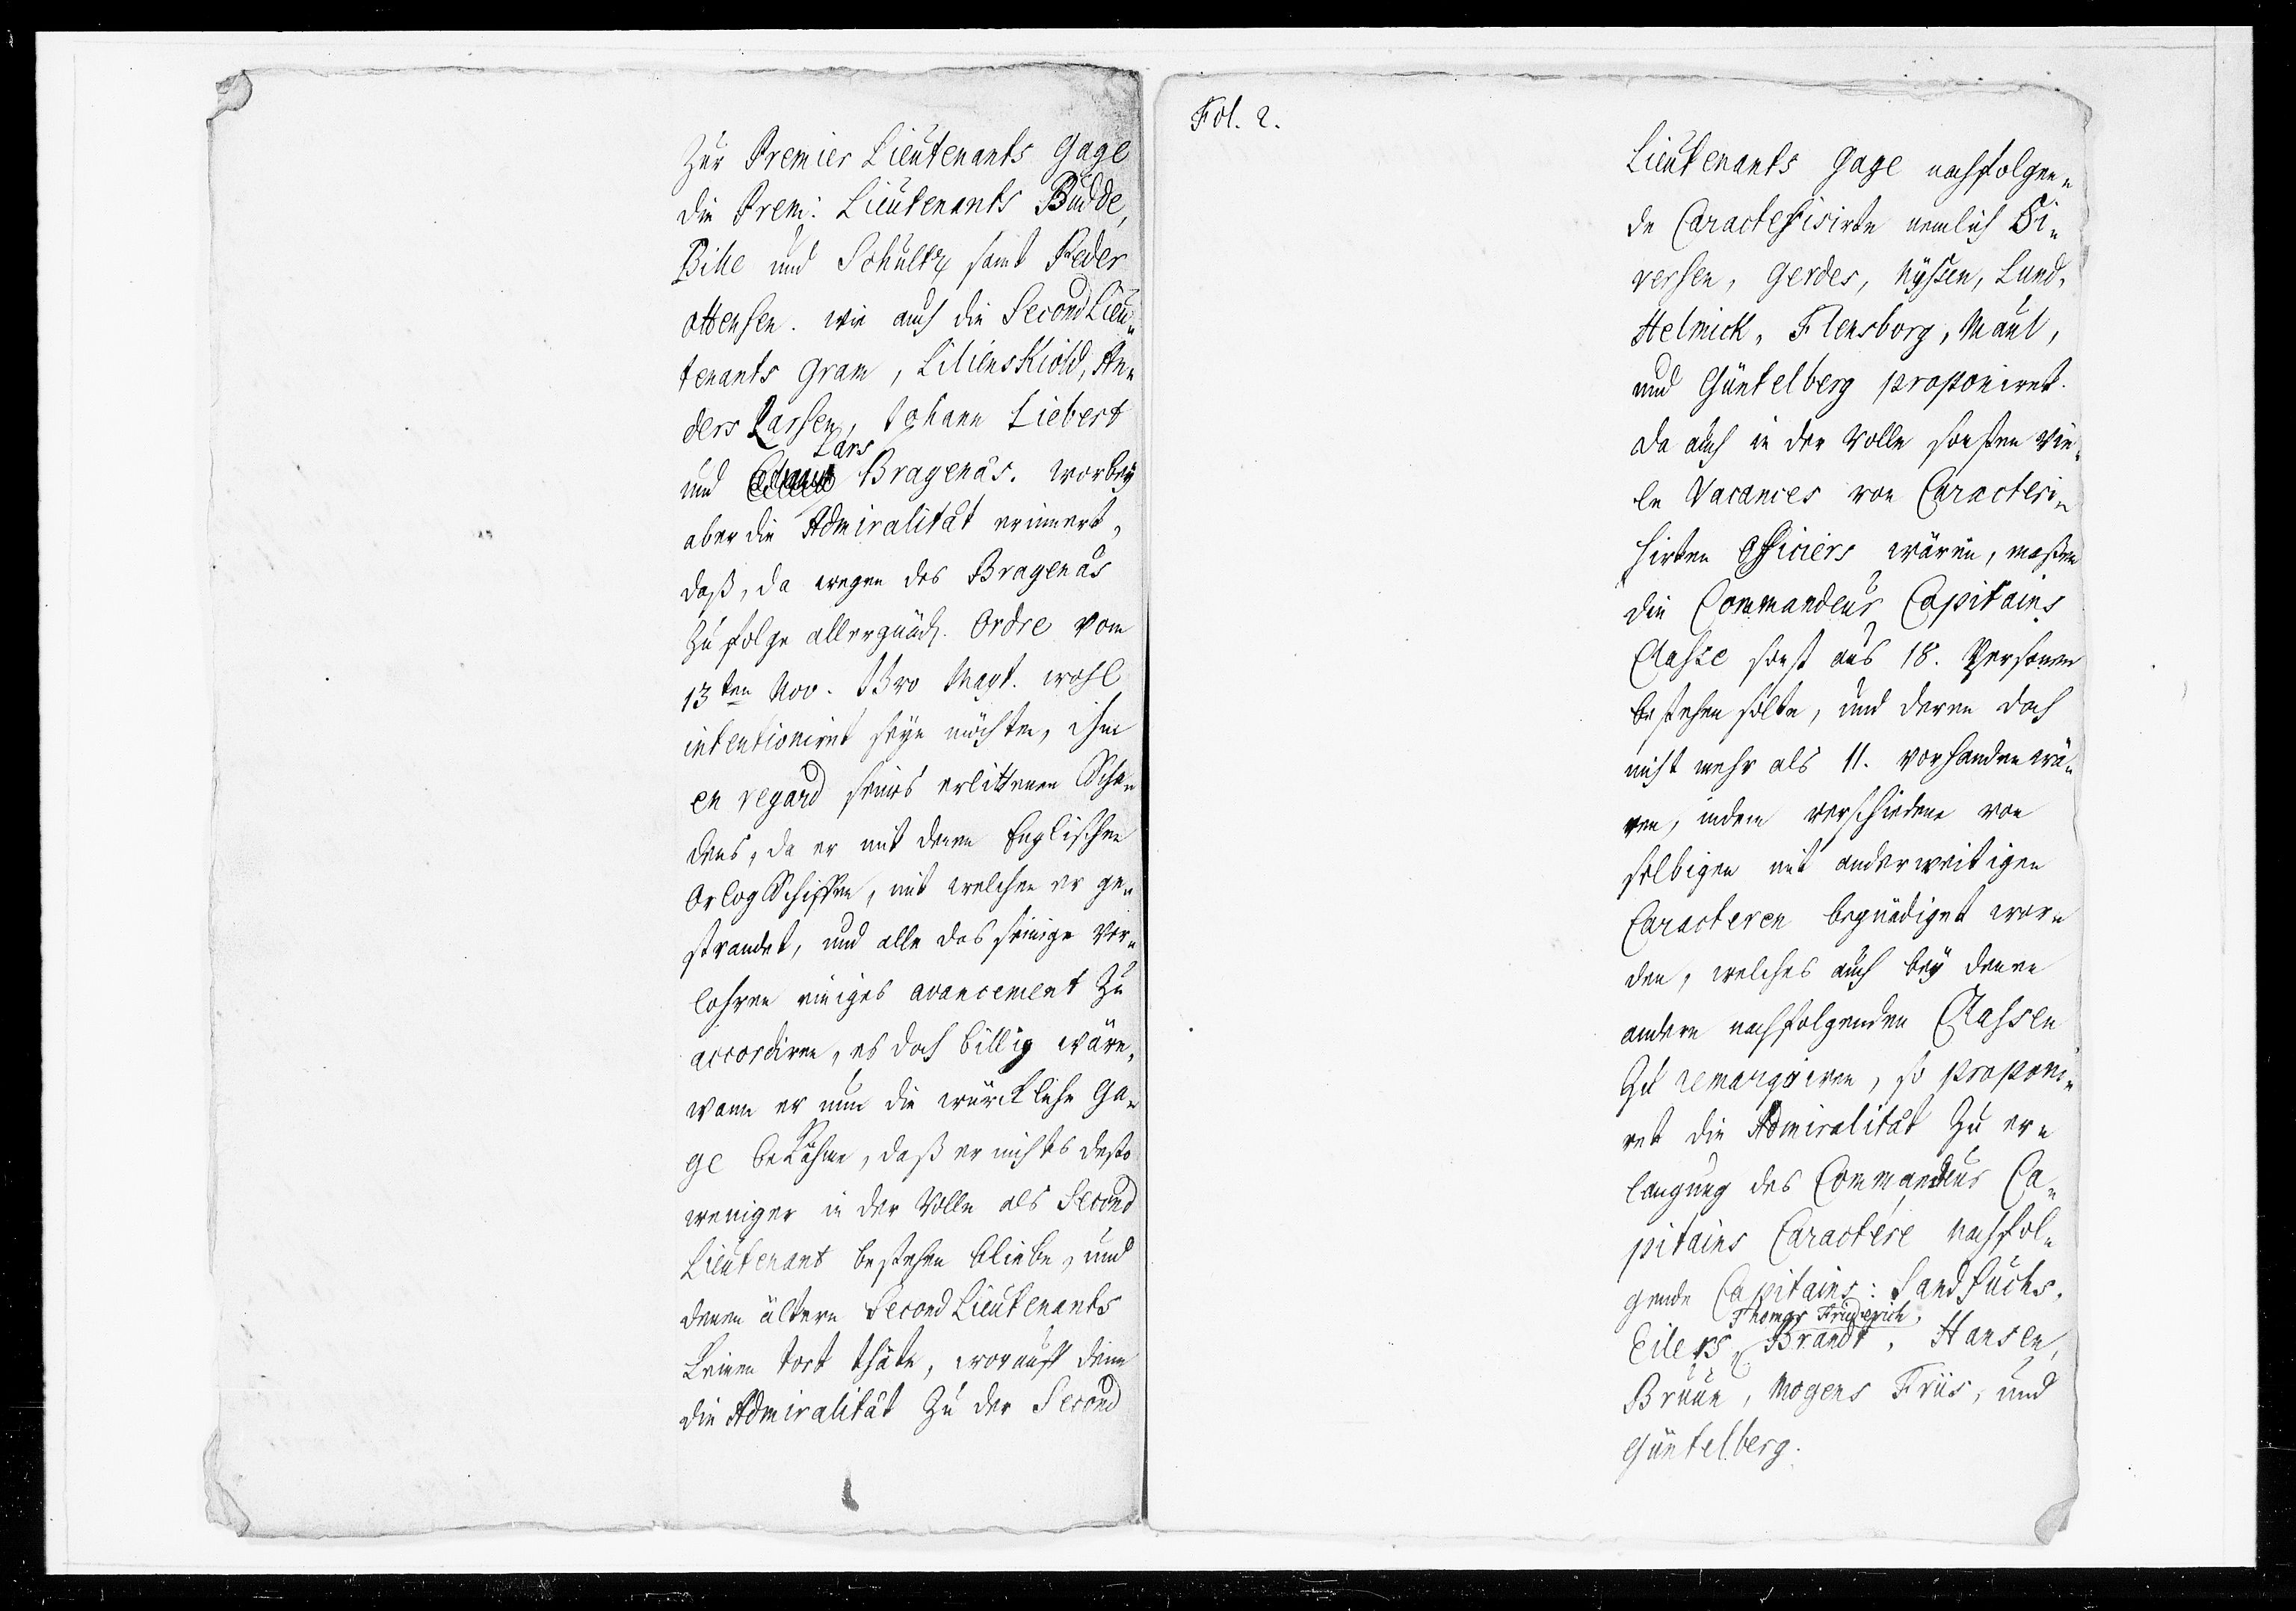 Zur Premier Lieutenants Gage
die Prem: Lieutenants Budde,
Bille und Schultz samt Peder
Ottensen. wie auch die Second Lieu¬
tenants Gram, Lilienskiold, An¬
ders Larsen, Johann Liebert
Lars
und Bragenäs. worbey
aber die Admiralität erinnert,
daß, da wegen des Bragenäs
zu folge allergnäd. Ordre vom
13ten Nov. Ihro Mayt. wohl
intentioniret seyn möchten, ihm
en regard seines erlittenen Scha¬
dens, da er mit denen Englischen
Orlog Schiffen, mit welchen er ge¬
strandet, und alle das seinige ver¬
lohren einiges avancement zu
accordiren, es doch billig wäre,
wann er nun die würckliche Ga¬
ge bekähme, daß er nichts desto
weniger in der Rolle als Second
Lieutenant bestehen bliebe, und
denen ältern Second Lieutenants
keinen tort thäte, worauff denn
die Admiralität zu der Second
Fol. 2.
Lieutenants Gage nachfolgen¬
de Caracterisirte nemlich Si¬
versen, Gerdes, Nyssen, Lund,
Helmick, Flensborg, Maul,
und Güntelberg proponiret.
Da auch in der Rolle sonsten vie¬
le Vacances von Caracteri¬
sirten Officiers wären, maßen
die Commandeur Capitains
Classe sonst aus 18. Personen
bestehen solte, und deren doch
nicht mehr als 11. vorhanden wä¬
ren, indem verschiedene von
selbigen mit anderweitigen
Caracteren begnädiget wor¬
den, welches auch bey denen
andern nachfolgenden Classen
zu remarquiren, so proponi¬
ret die Admiralität zu er¬
langung des Commandeur Ca¬
pitains Caractére nachfol¬
gende Capitains: Landsuchs,
Thomas Friderich
Eilers, Brandt, Hansen,
Bruun, Mogens Friis, und
Güntelberg.